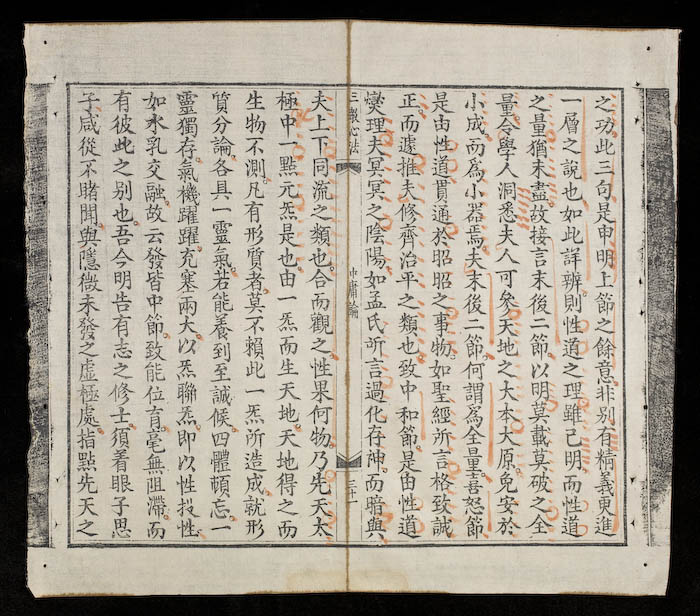 之功此三句是申明上節之餘意非別有精義更進
一層之說也如此詳辨則性道之理雖已明而性道
之量猶未盡故接言末後二節以明莫載莫破之全
量令學人洞悉夫人可參天地之大本大原免安於
小成而爲小器焉夫末後二節何謂爲全量喜怒節
是由性道貫通於昭昭之事物如聖經所言格致誠
正而遽推夫修齊治平之類也致中和節是由性道
燮理夫冥冥之陰陽如孟氏所言過化存神而暗與
三教心法
中庸論
三十一
夫上下同流之類也合而觀之性果何物乃先天太
極中一點元炁是也由一炁而生天地天地得之而
生物不測凡有形質者莫不賴此一炁所造成就形
質分論各具一靈氣若能養到至誠候四體頓忘一
靈獨存氣機躍躍充塞兩大以炁聯炁即以性投性
如水乳交融故云發皆中節致能位育毫無阻滯而
有彼此之別也吾今明告有志之修士須着眼子思
子咸從不睹聞與隱微未發之虛極處指點先天之